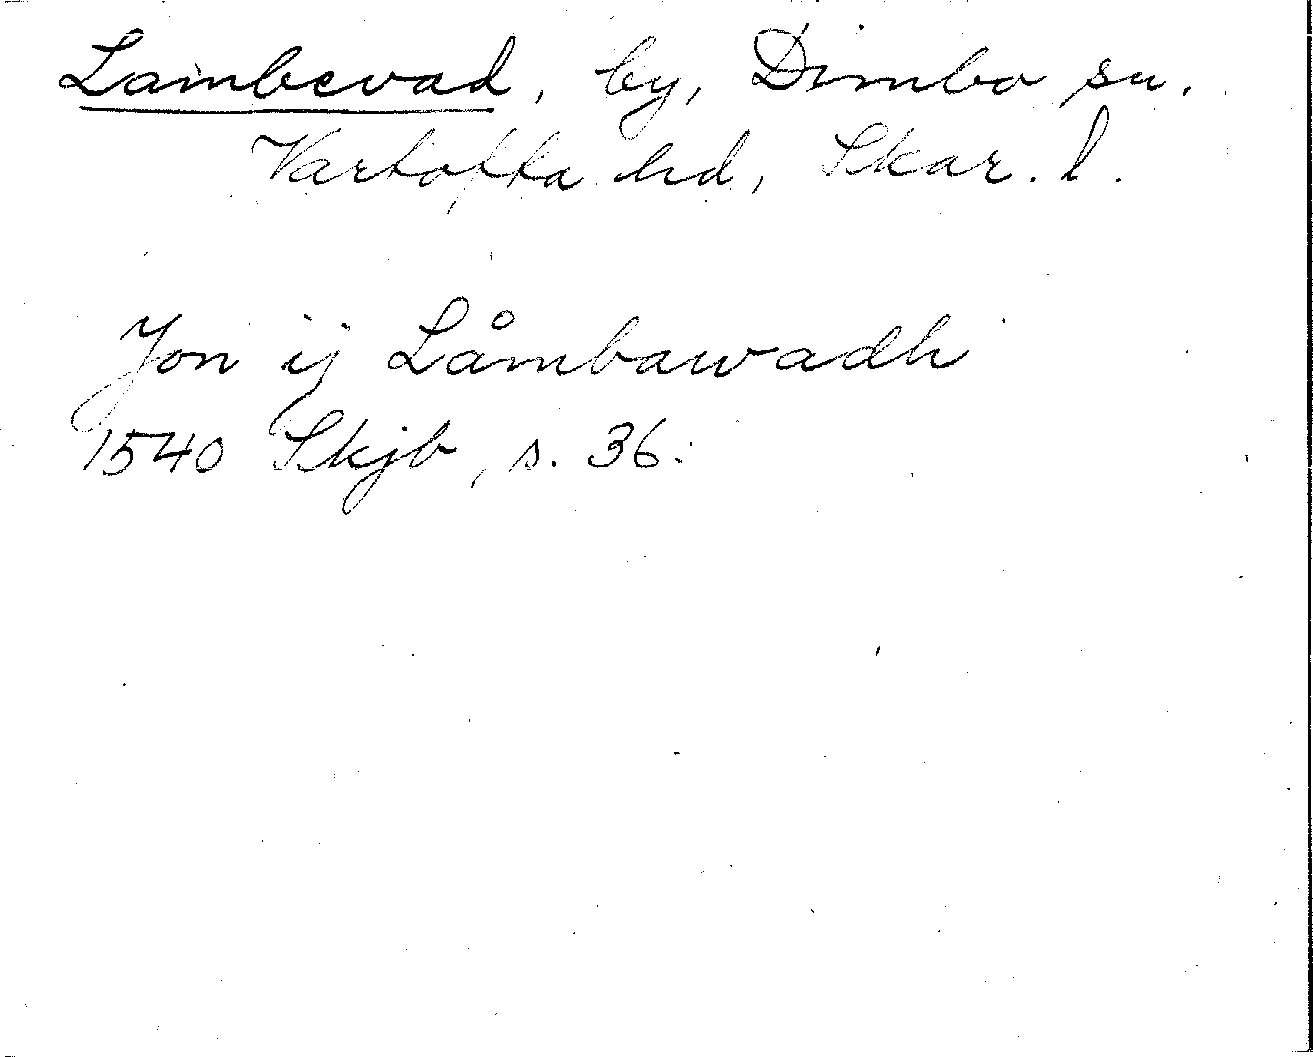 Lambevad, by, Dimbo sn.
Vartofta hd, Skar. l.
Jon ij Låmbawadh
1540 Skjb, s. 36.